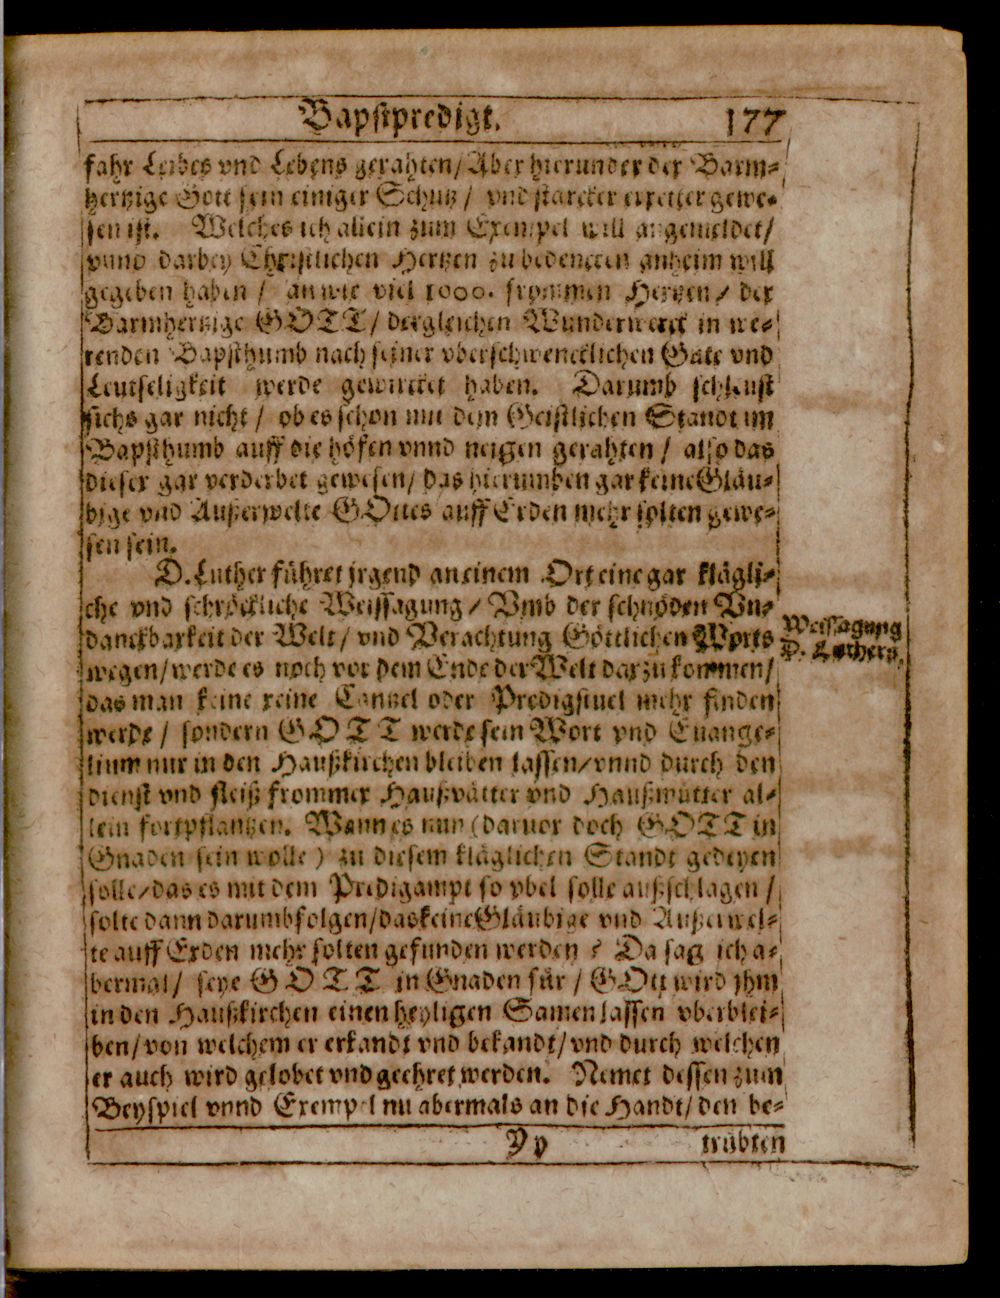 Bapstpredigt. 177
fahr Leibes vnd Lebens gerahten/ Aber hierunder der Barm-
hertzige Gott sein einiger Schutz / vnd starcker erretter gewe-
sen ist. Welches ich allein zum Exempel will angemeldet/
vnnd darbey Christlichen Hertzen zu bedencken anheim will
gegeben haben / an wie viel 1000. frommen Hertzen / der
Barmhertzige GOTT / dergleichen Wunderwerck in we-
renden Bapsthumb nach seiner vberschwencklichen Güte vnd
Leutseligkeit werde gewircket haben. Darumb schleust
sichs gar nicht / ob es schon mit dem Geistlichen Standt im
Bapsthumb auff die höfen vnnd neigen gerahten / also das
dieser gar verderbet gewesen/ das hierumben gar keine Gläu-
bige vnd Außerwelte GOttes auff Erden mehr solten gewe-
sen sein.
D. Luther führet jrgend an einem Ort eine gar klägli-
che vnd schröckliche Weissagung / Vmb der schnöden Vn-
danckbarkeit der Welt / vnd Verachtung Göttlichen Worts
wegen/ werde es noch vor dem Ende der Welt darzu kommen/
das man keine reine Cantzel oder Predigstuel mehr finden
werde / sondern GOTT werde sein Wort vnd Euange-
lium nur in den Haußkirchen bleiben lassen/ vnnd durch den
dienst vnd fleiß frommer Haußvätter vnd Haußmütter al-
lein fortpflantzen. Wann es nun (daruor doch GOTT in
Gnaden sein wolle) zu diesem kläglichen Standt gedeyen
solle/ das es mit dem Predigampt so vbel solle außschlagen /
solte dann darumb folgen/ das keine Gläubige vnd Außerwel-
te auff Erden mehr solten gefunden werden ? Da sag ich a-
bermal / seye GOTT in Gnaden für / GOtt wird jhm
in den Haußkirchen einen heyligen Samen lassen vberblei-
ben/ von welchem er erkandt vnd bekandt/ vnd durch welchen
er auch wird gelobet vnd geehret werden. Nemet dessen zum
Beyspiel vnnd Exempel nu abermals an die Handt/ den be-
Weissagung
D. Luthers.
Yy trübten